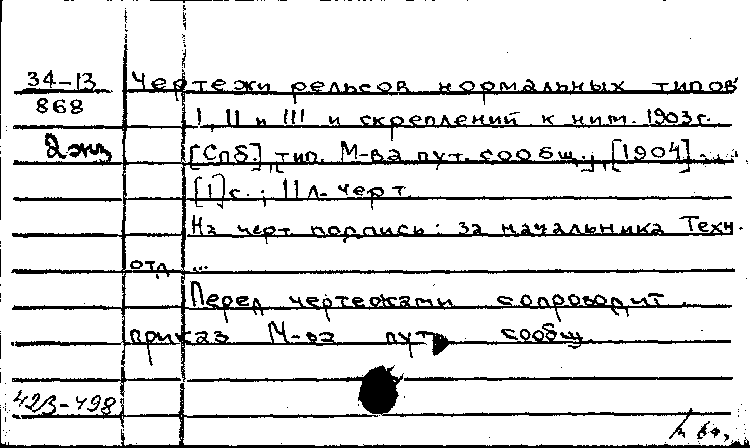 34-13 Чертежи рельсов нормальных типов
868 I, II и III и скреплений к ним. 1903 г.
2 экз [Спб.], тип. М-ва пут. сообщ., [1904]....
[1] с.; 11 л. черт.
На черт подпись: за начальника Техн.
отд ...
Перед чертежами сопроводит.
приказ М-ва пут. сообщ.
423-498